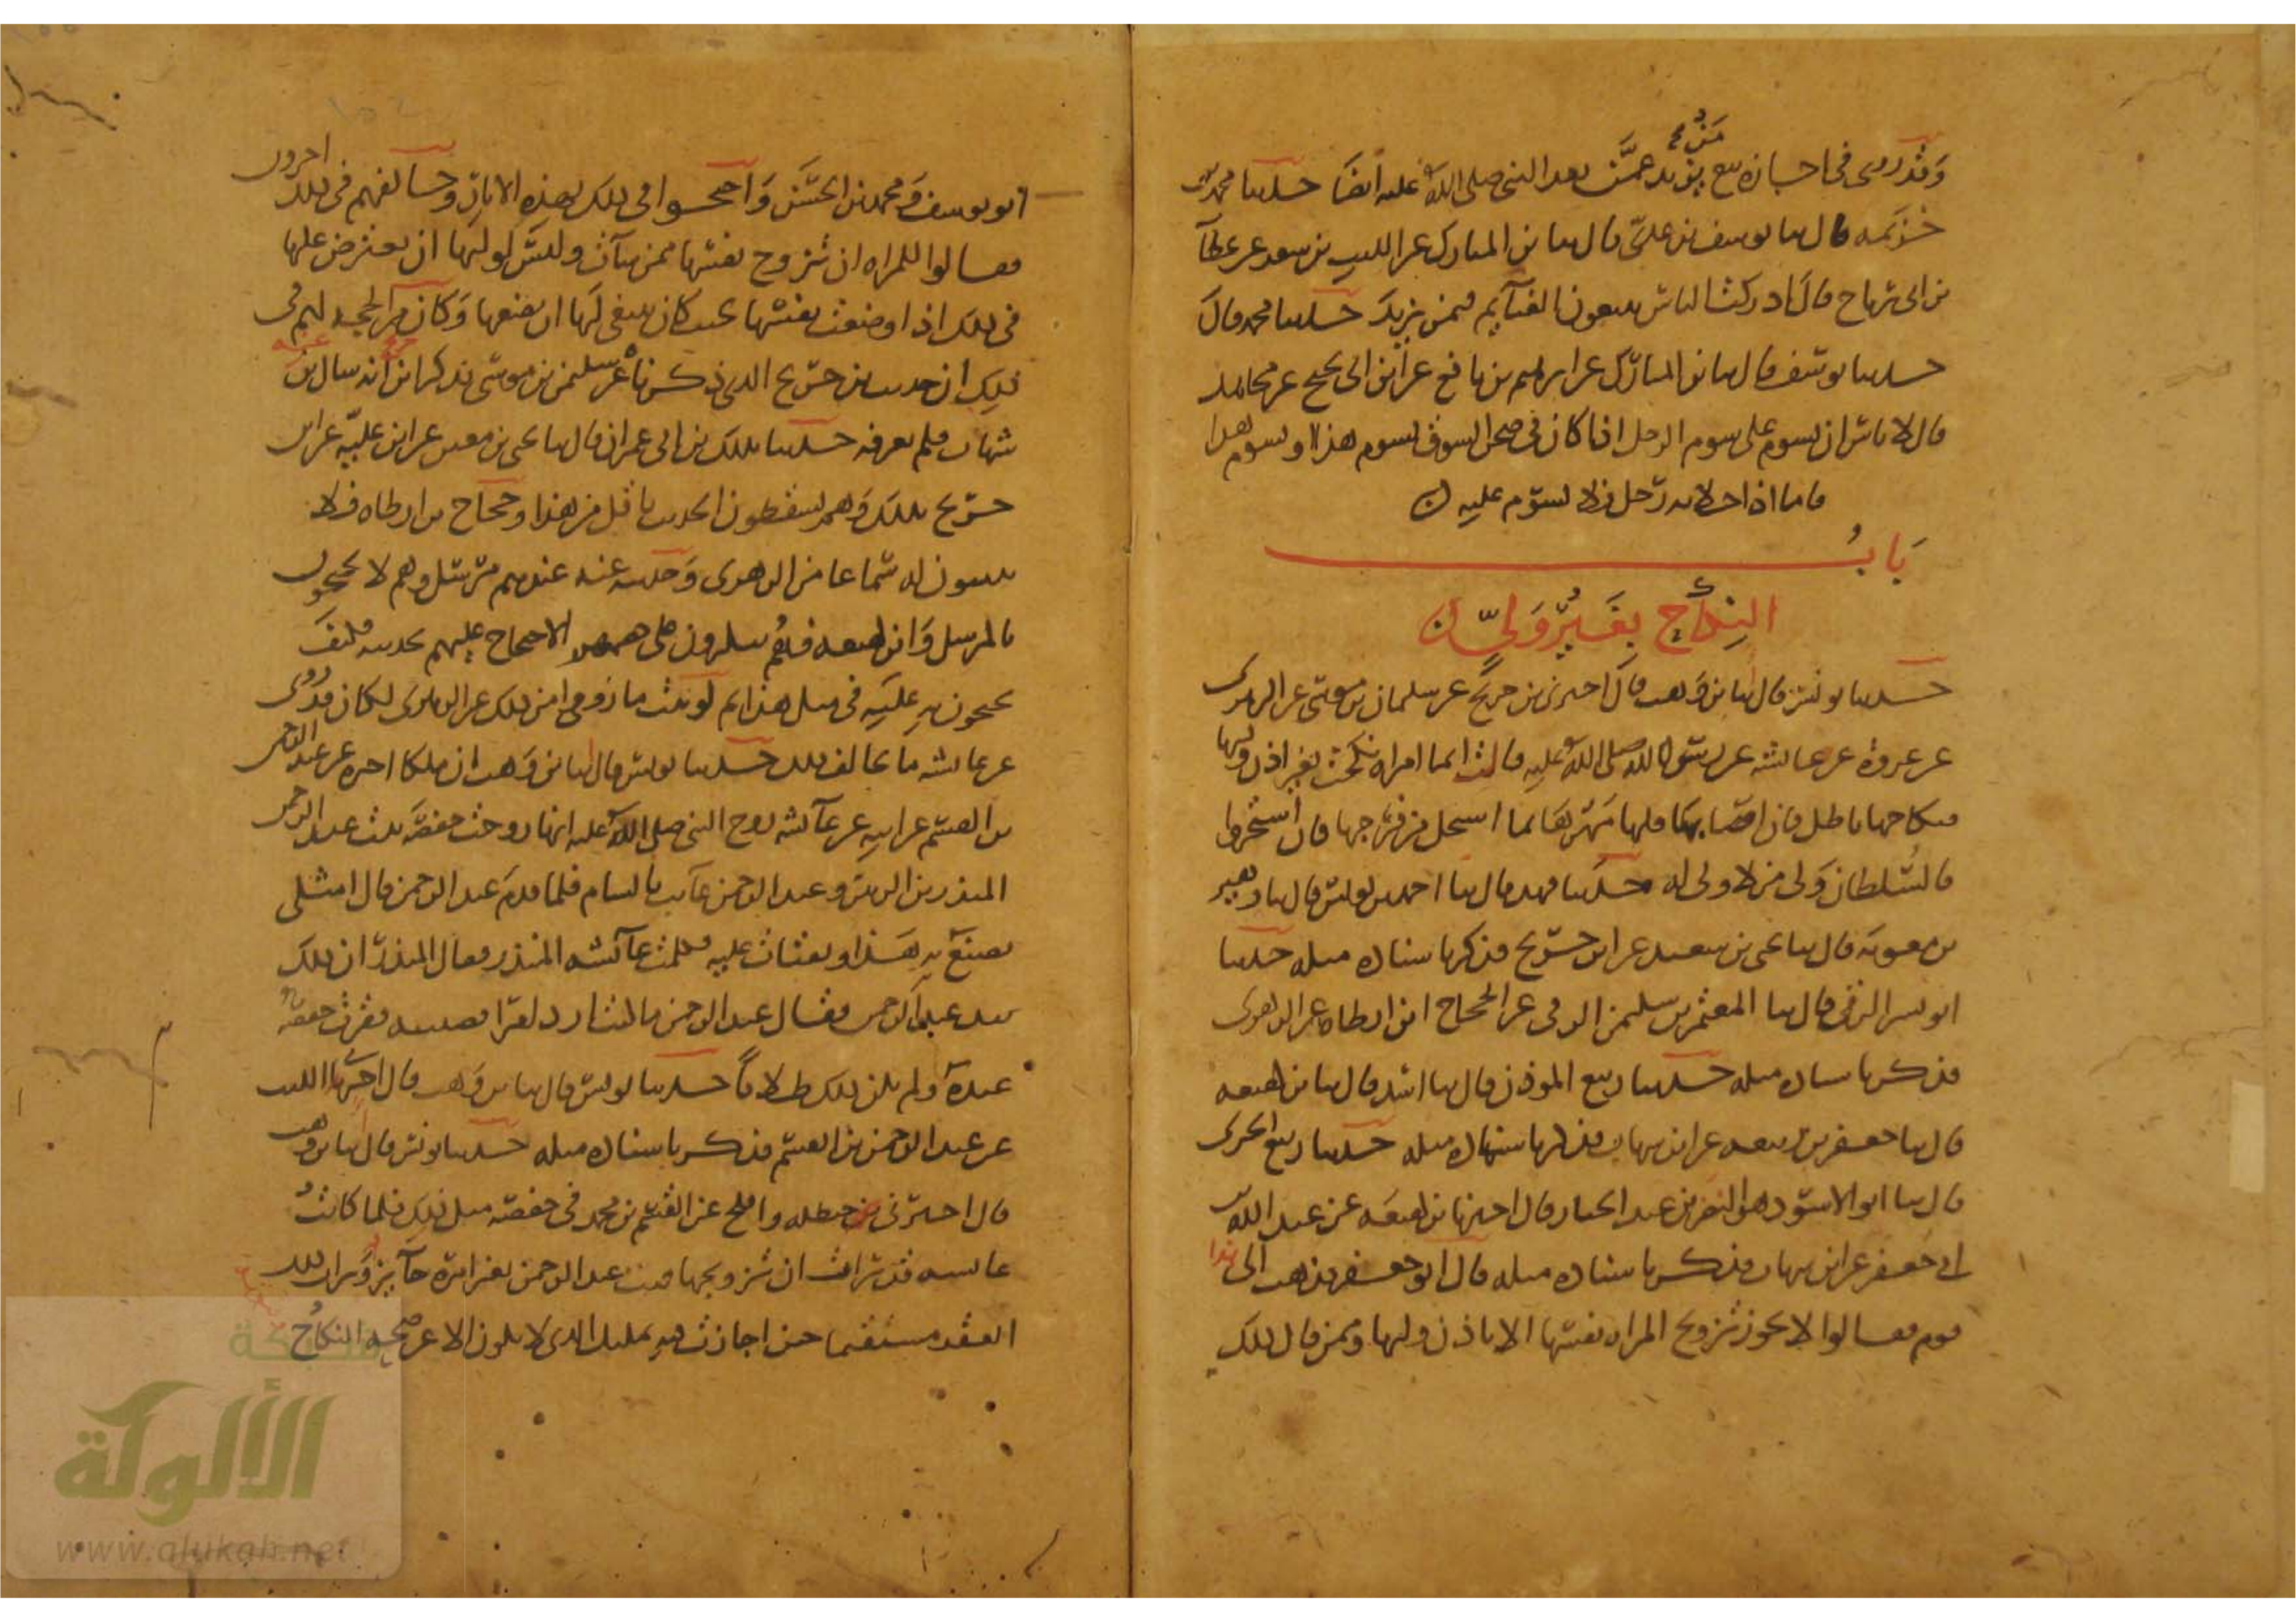 وقد روي في اجازة بيع من يزيد عمن بعد النبي صلى الله عليه ايضا حدثنا محمد بن
خزيمه قال ثنا يوسف بن عدي قال ثنا بن المبارك عن الليث بن سعد عن عطآ
بن ابي رباح قال ادركت الناس يبيعون الغنآيم فيمن يزيد حدثنا محمد قال
حدثنا يوسف قال ثنا بن المبارك عن ابرهيم بن نافع عن ابن ابي نجيح عن مجاهد
قال لا باس ان يسوم على سوم الرجل اذا كان في صحن السوق يسوم هذا ويسوم هذا
فاما اذا خلا به رجل فلا يسوم عليه
باب
النكاح بغير ولي
حدثنا يونس قال انا بن وهب قال اخبرني بن جريج عن سليمان بن موسى عن الزهري
عن عروة عن عايشه عن رسول الله صلى الله عليه قالت ايما امراه نكحت بغير اذن وليها
فنكاحها باطل فان اصابها فلها مهرها بما استحل من فرجها فان اشتجروا
فالسلطان ولي من لا ولي له حدثنا فهد قال ثنا احمد بن يونس قال ثنا زهير
بن معويه قال ثنا يحيى بن سعيد عن ابن جريج فذكر باسناده مثله حدثنا
ابو بشر الرقي قال ثنا المعتمر بن سليمن الرقي عن الحجاج ابن ارطاه عن الزهري
فذكر باسناده مثله حدثنا ربيع الموذن قال ثنا اسد قال ثنا بن لهيعه
قال ثنا جعفر بن ربيعه عن ابن شهاب فذكر باسناده مثله حدثنا ربيع الجيزي
قال ثنا ابو الاسود هو النضر بن عبد الجبار قال اخبرنا بن لهيعه عن عبيد الله بن
ابي جعفر عن ابن شهاب فذكر باسناده مثله قال ابو جعفر فذهب الى هذا
قوم فقالوا لا يجوز تزويج المراه نفسها الا باذن وليها وممن قال ذلك
ابو يوسف ومحمد بن الحسن واحتجوا في ذلك بهذه الاثار وخالفهم في ذلك اخرون
فقالوا للمراه ان تزوج نفسها ممن شآت وليس لوليها ان يعترض عليها
في ذلك اذا وضعت نفسها حيث كان ينبغي لها ان تضعها وكان من الحجه لهم في
ذلك ان حديث بن جريج الذي ذكرناه عن سليمن بن موسى يذكر ابن جريج انه سال عنه بن
شهاب فلم يعرفه حدثنا بذلك بن ابي عمران قال ثنا يحيى بن معين عن ابن عليه عن ابن
جريج بذلك وهم يسقطون الحديث باقل من هذا وحجاج بن ارطاه فلا
يثبتون له سماعا من الزهري وحديثه عنه عندهم مرسل وهم لا يحتجون
بالمرسل وابن لهيعه فهم ينكرون على خصمهم الاحتجاج عليهم بحديثه فكيف
يحتجون به عليه في مثل هذا ثم لو ثبت ما رووا من ذلك عن الزهري لكان قد روي
عن عايشه ما يخالف ذلك حدثنا يونس قال انا بن وهب ان ملكا اخبره عن عبد الرحمن
بن القسم عن ابيه عن عآيشه زوج النبي صلى الله عليه انها زوجت حفصه بنت عبد الرحمن
المنذر بن الزبير وعبد الرحمن غآيب بالشام فلما قدم عبد الرحمن قال امثلي
يصنع به هذا ويفتات عليه فكلمت عآئشه المنذر فقال المنذر ان ذلك
بيد عبد الرحمن فقال عبد الرحمن ما كنت ارد امرا قضيته فقرت حفصه
عنده ولم يكن ذلك طلاقا حدثنا يونس قال ثنا بن وهب قال اخبرنا الليث
عن عبد الرحمن بن القسم فذكر باسناده مثله حدثنا يونس قال انا بن وهب
قال اخبرني بن حنظله وافلح عن القسم بن محمد في حفصه مثل ذلك فلما كانت
عايشه قد رات ان تزويجها بنت عبد الرحمن بغير امره جآيز ورات ذلك
العقد مستقيما حتى اجازت فيه التمليك الذي لا يكون الا عن صحه النكاح
شبكة
الألوكة
www.alukah.net